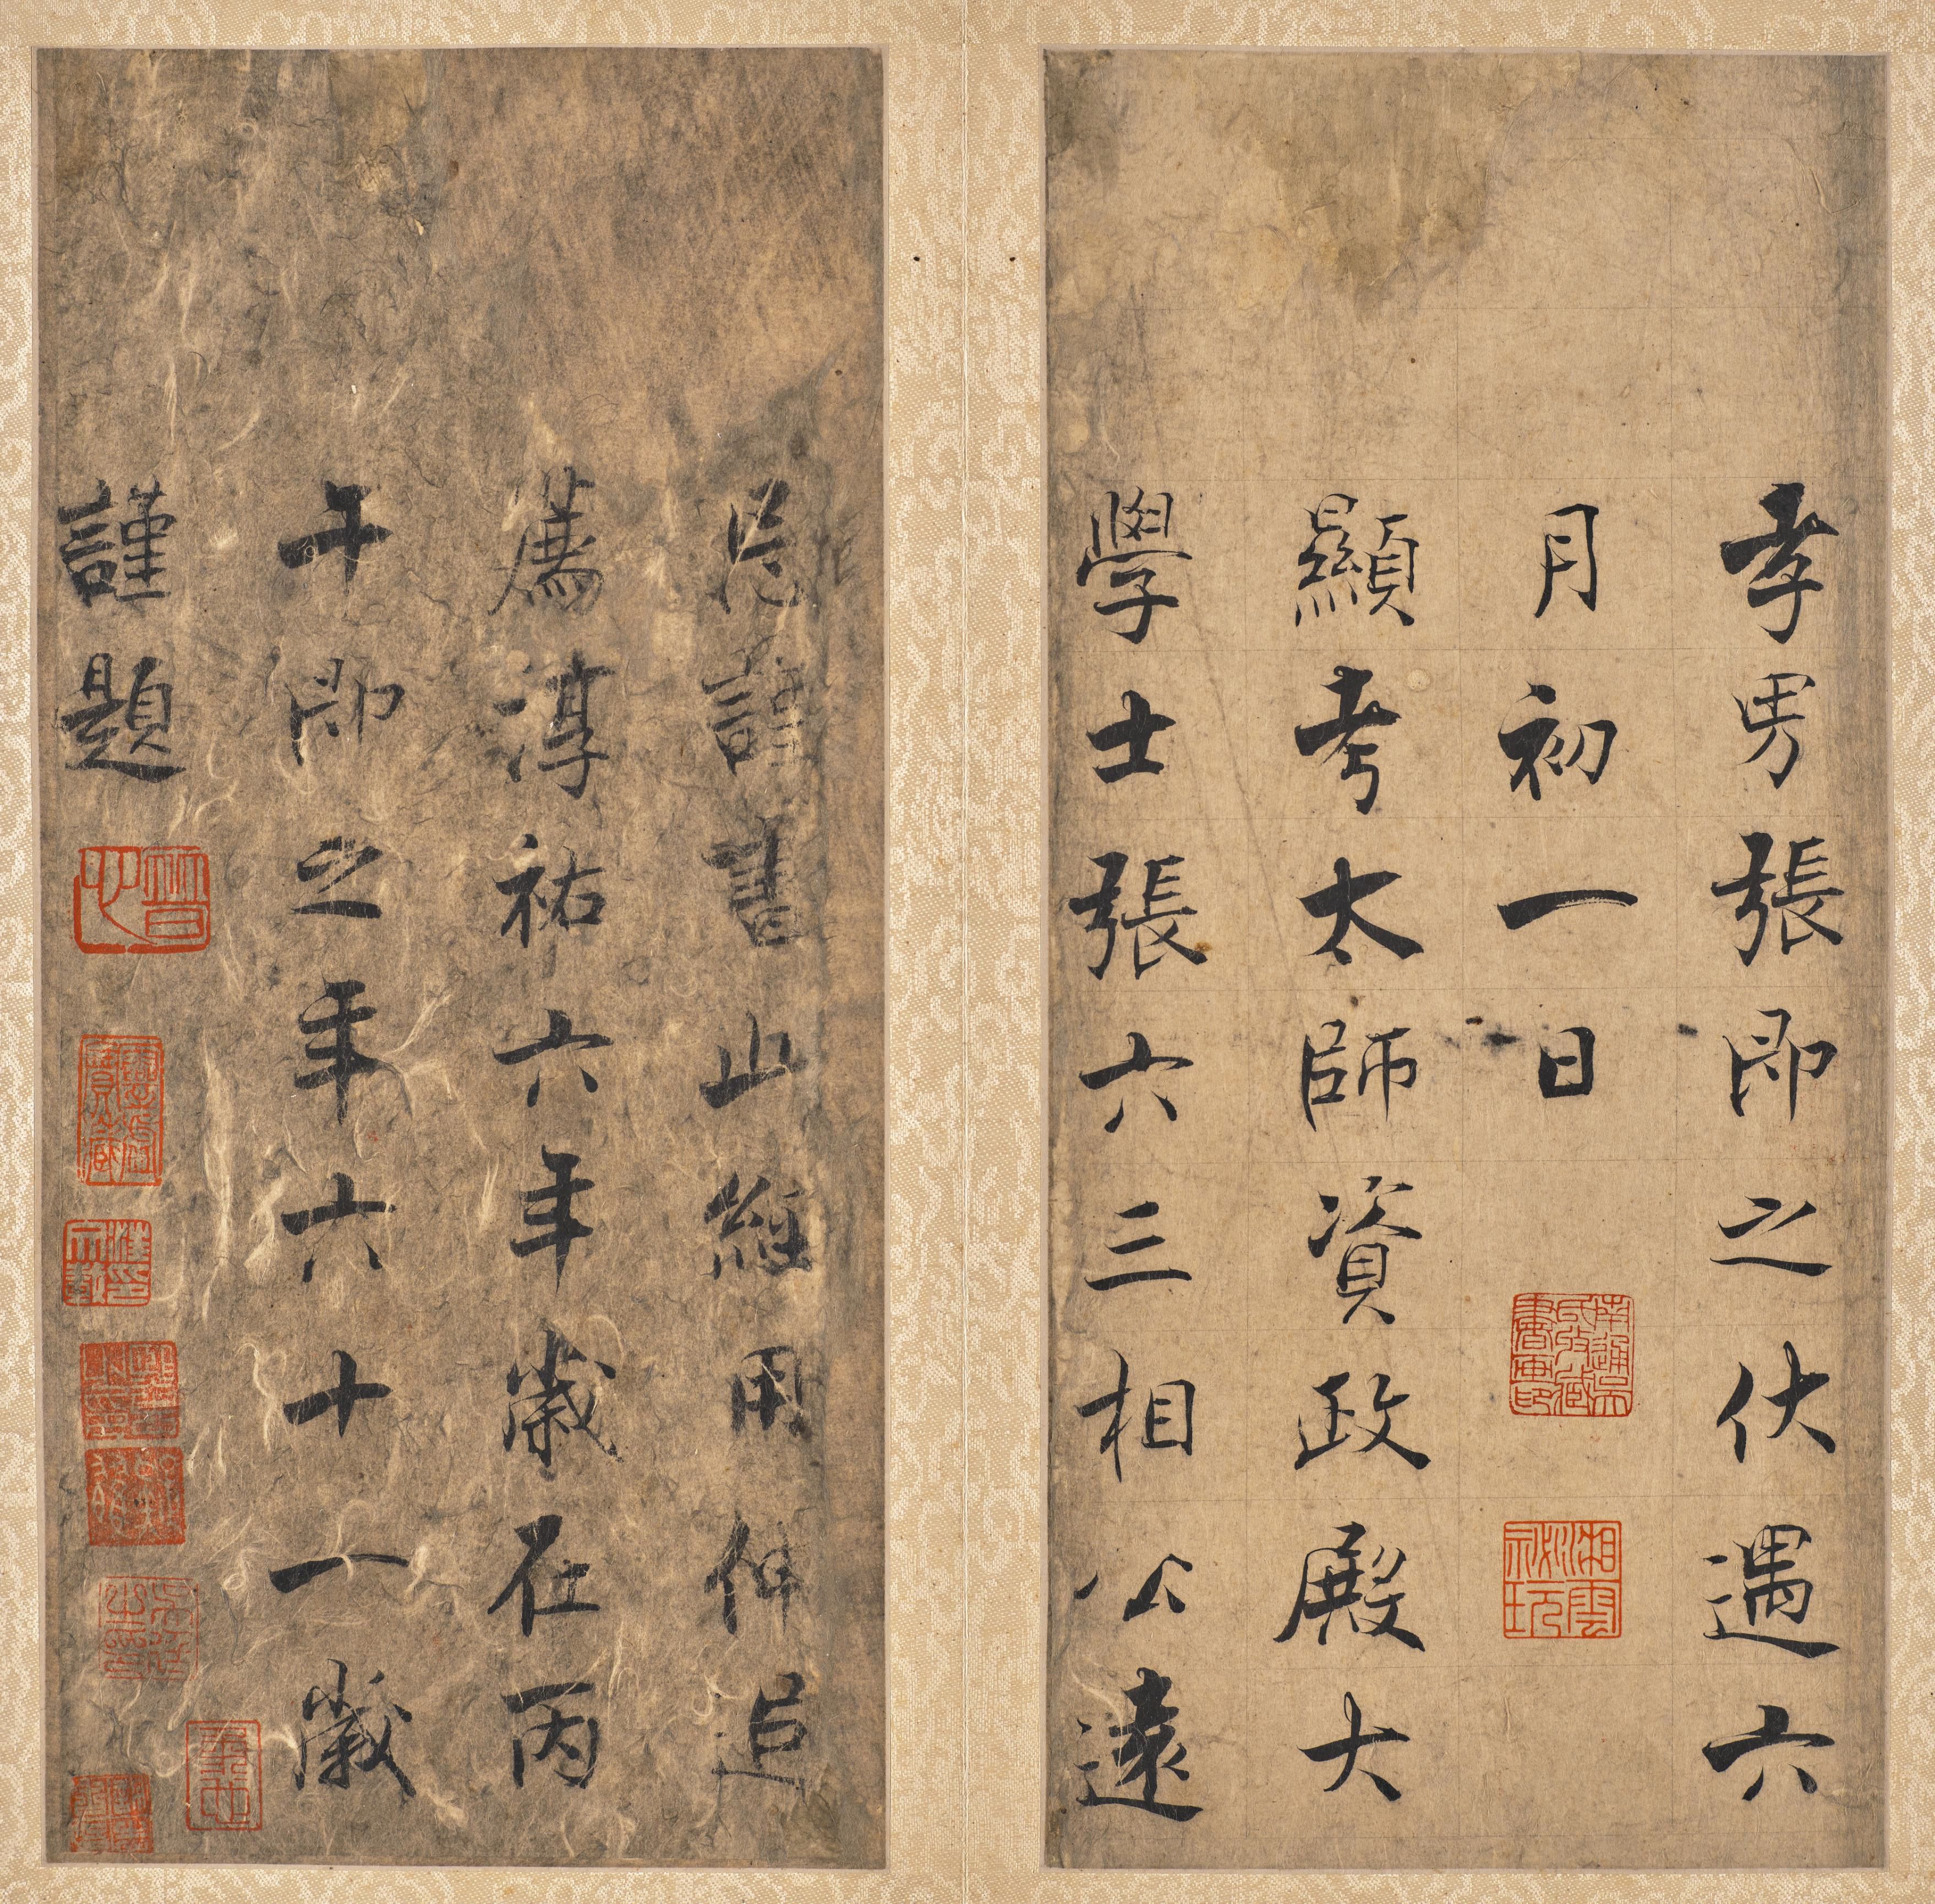 孝男張即之伏遇六
月初一日
顯考太師資政殿大
學士張六三相公遠
忌謹書此經用伸追
薦淳祐六年歲在丙
午即之年六十一歲
謹題
湘雲秘玩